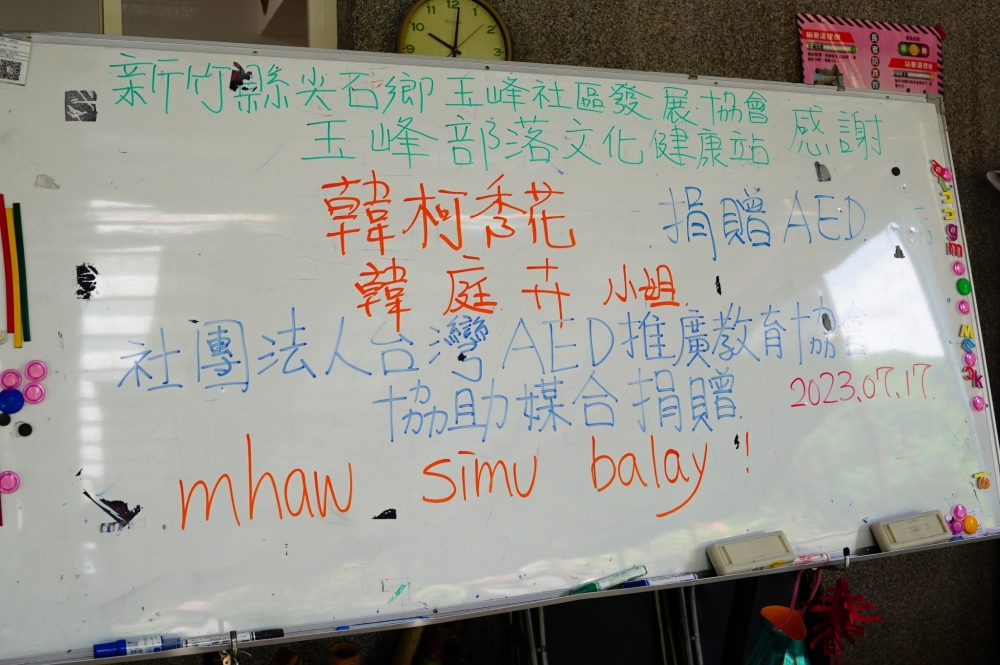 新竹縣尖石鄉玉峰社區發展協會
玉峰部落文化健康站 感謝
韓柯秀花 捐贈AED
韓庭卉 小姐
社團法人台灣AED推廣教育協會
協助媒合捐贈 2023.07.17.
mhaw simu balay!